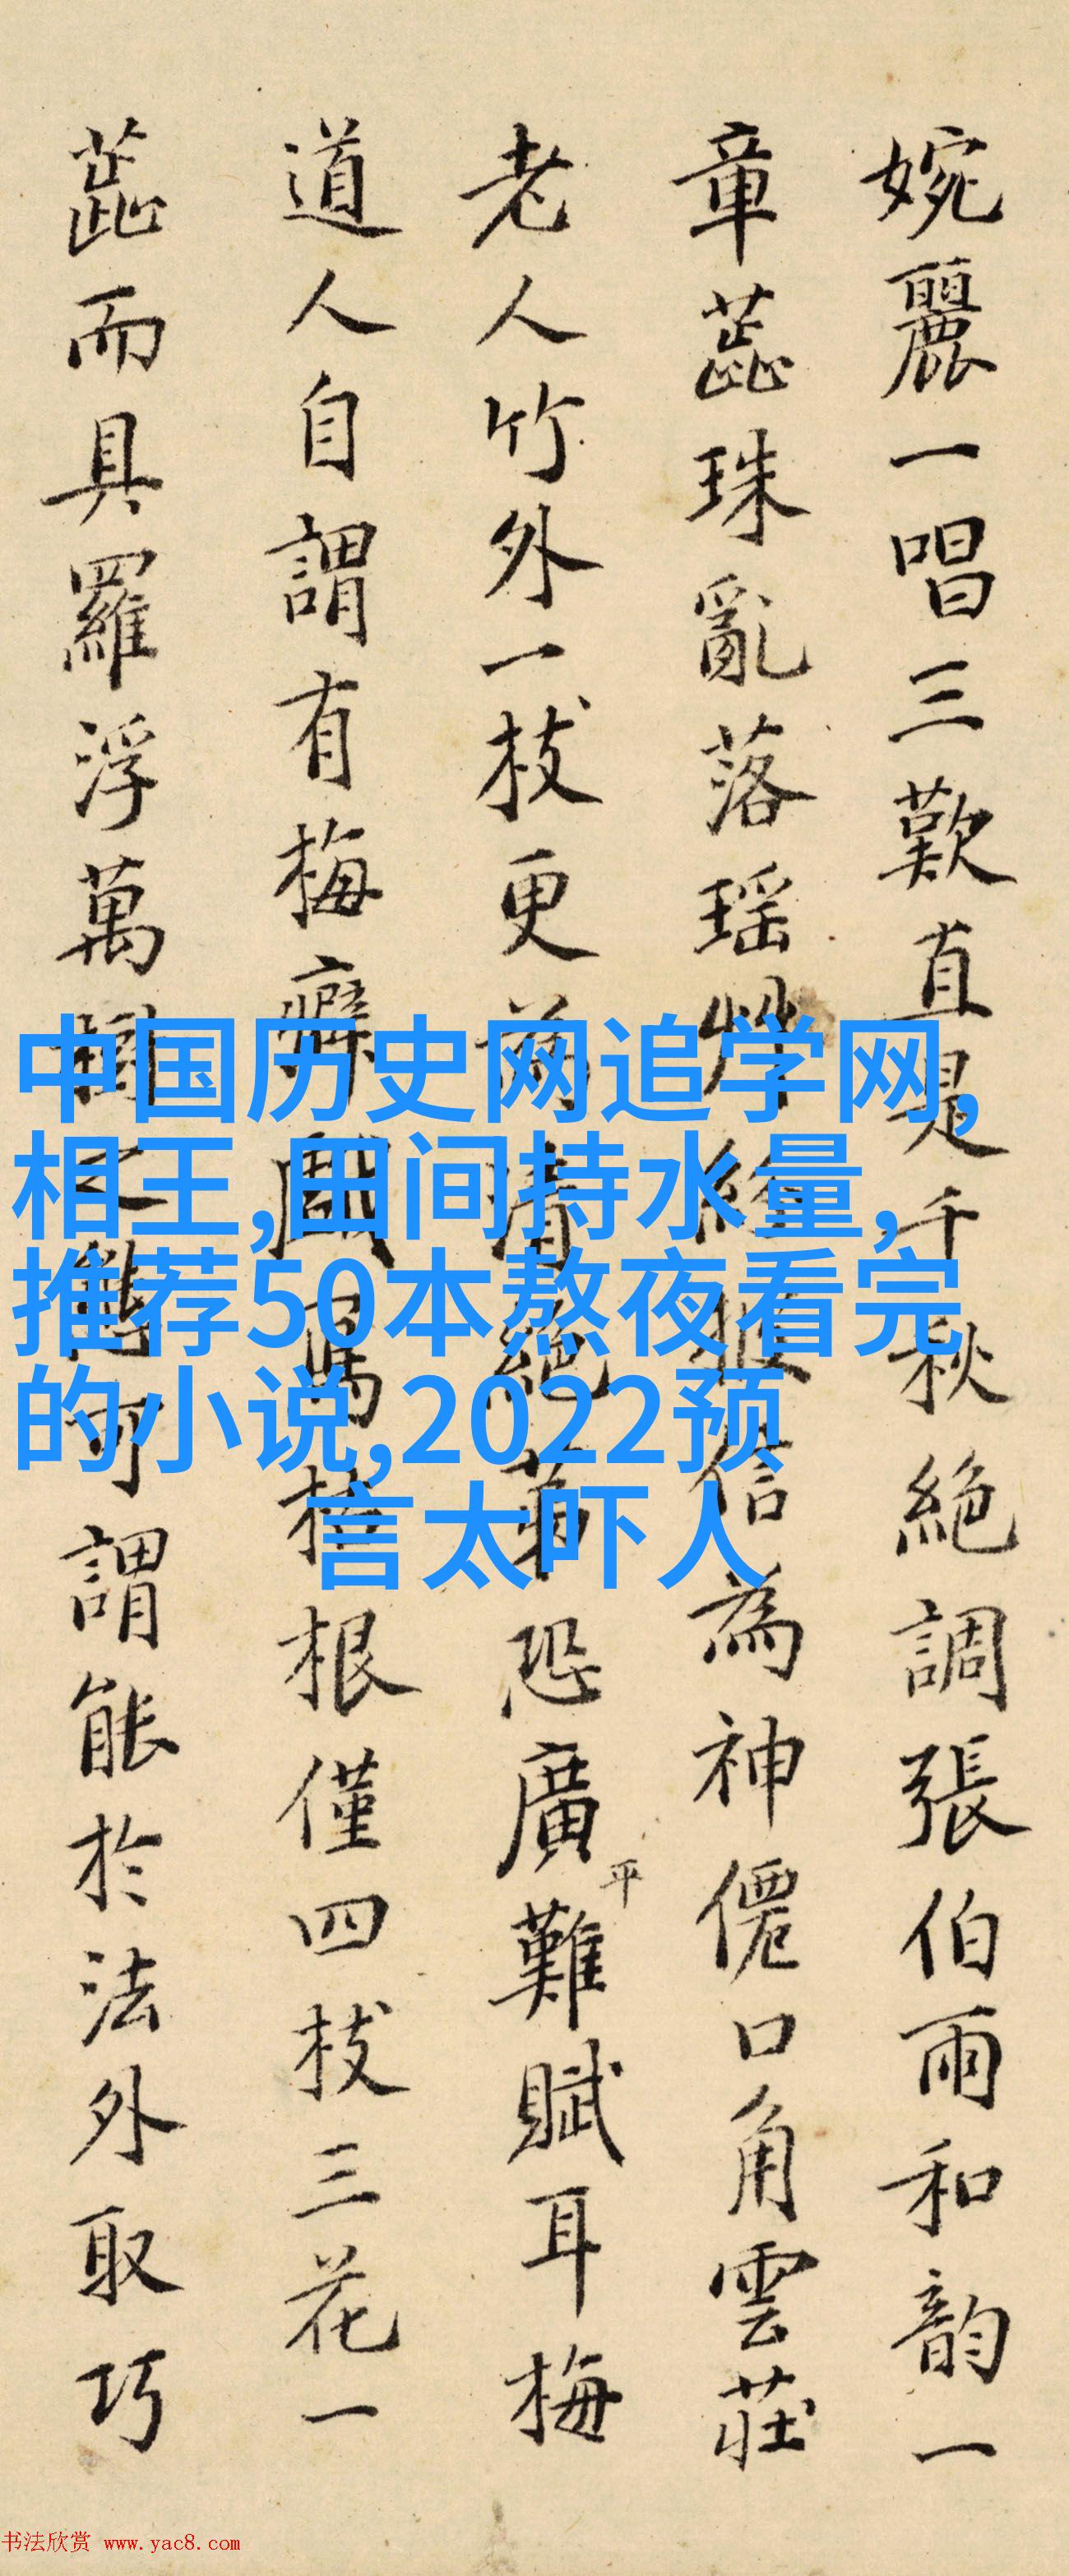 婉麗一唱三歎直是千秋絶調張伯雨和韵一
章蕋珠亂落瑶信為神僊口角雲莊
老人竹外一枝更為清絶苐恐廣平難賦耳梅
道人自謂有梅癖戲寫根僅四枝三花一
蕋而具羅浮萬樹之態可謂能於法外取巧
中国历史网追学网,
相王,田间持水量,
推荐50本熬夜看完
的小说,2022预
言太吓人
书法欣赏 www.yac8.com